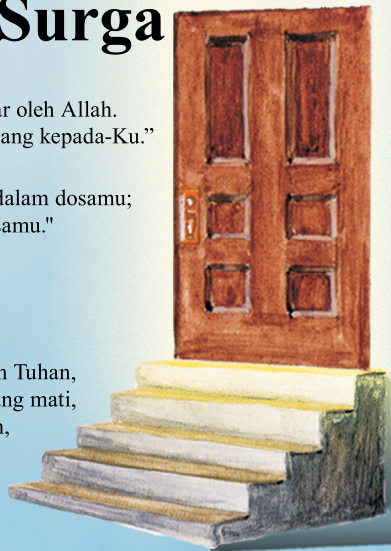 Surga
ar oleh Allah.
ang kepada-Ku.”
dalam dosamu;
samu."
n Tuhan,
ang mati,
n,